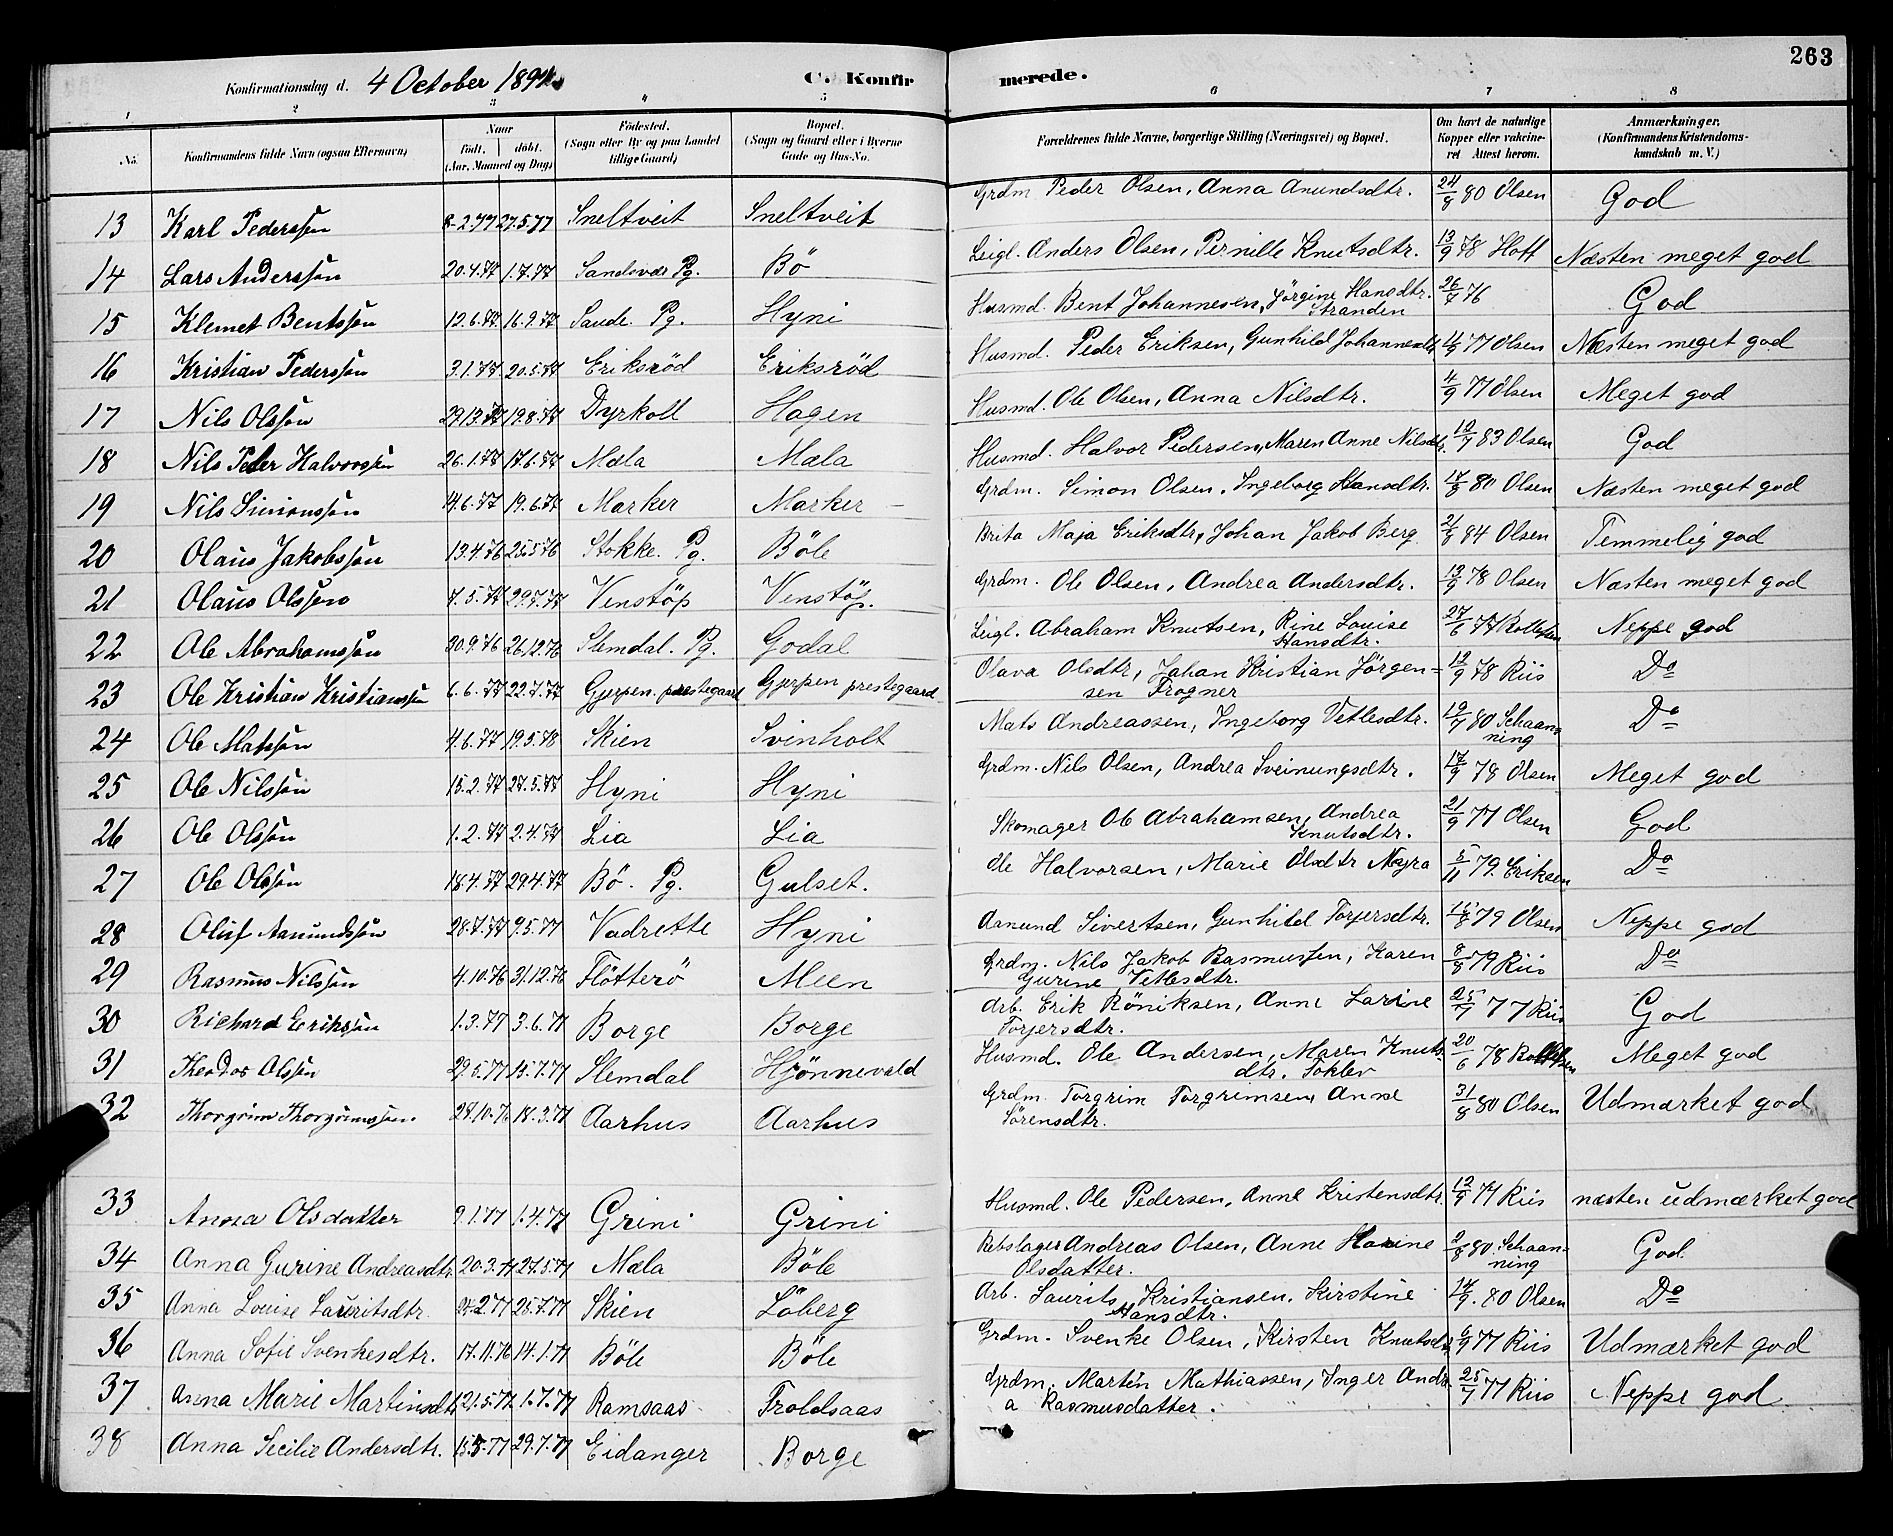 263
Konfirmationsdag d. 4 October 1891. C. Konfirmerede.
1 2 3 4 5 6 7 8
No. Konfirmandens fulde Navn (ogsaa Efternavn) Naar født. døbt. (Aar, Maaned og Dag) Födested. (Sogn eller By og paa Landet tillige Gaard) Bopæl. (Sogn og Gaard eller i Byerne Gade og Hus-No. Forældrenes fulde Navne, borgerlige Stilling (Næringsvei) og Bopæl. Om havt de naturlige Kopper eller vakcineret Attest herom. Anmærkninger. (Konfirmandens Kristendomskundskab m. V.)
13 Karl Pederssøn 8-2.77 27.5.77 Sneltveit Sneltveit Grdm Peder Olsen, Anna Anundsdtr. 24/8 80 Olsen God
14 Lars Anderssøn 20.4.77 1.7.77 Sandsvær Pg. Bö Leigl. Anders Olsen, Pernille Knutsdtr. 13/9 78 Hoff Næsten meget god
15 Klemet Bentssøn 12.6.77 16.9.77 Saude. Pg. Hyni Husmd. Bent Johannesen, Jörgine Hansdtr. Stranden 26/7 76 God
16 Kristian Pederssøn 3.1.77 20.5.77 Eriksröd Eriksröd Husmd. Peder Eriksen, Gunhild Johannesdtr 4/9 77 Olsen Næsten meget god
17 Nils Olssøn 19.8.77 Dyrkoll Hagen Husmd. Ole Olsen, Anna Nilsdtr. 4/9 77 Olsen Meget god
18 Nils Peder Halvorssøn 26.1.77 17.6.77 Mæla Mæla Husmd. Halvor Pedersen, Maren Anne Nilsdtr. 12/7 83 Olsen God
19 Nils Simonssøn 14.6.77 19.6.77 Marker Marker Grdm. Simon Olsen, Ingeborg Hansdtr. 17/8 80 Olsen Næsten meget god
20 Olaus Jakobssøn 13.4.76 25.5.76 Stokke. Pg. Böle Brita Maja Eriksdtr, Johan Jakob Berg 21/8 84 Olsen Temmelig god
21 Olaus Olssøn 7.5.77 29.7.77 Venstöp Venstöp. Grdm. Ole Olsen, Andrea Andersdtr. 13/9 78 Olsen Næsten meget god
22 Ole Abrahamssøn 20.9.76 26.12.76 Slemdal. Pg. Godal Leigl. Abraham Knutsen, Rine Louise Hansdtr. 27/6 77 Neppe god
23 Ole Kristian Kristianssøn 6.6.77 22.7.77 Gjerpen prestegaard Gjerpen prestegaard Olava Olsdtr, Johan Kristian Jörgensen Frogner 12/9 78 Riis Do
24 Ole Matssøn 4.6.77 19.5.78 Skien Svinholt Mats Andreassen, Ingeborg Vetlesdtr. 19/7 80 Schaanning Do
25 Ole Nilssøn 15.2.77 27.5.77 Hyni Hyni Grdm. Nils Olsen, Andrea Sveinungsdtr. 17/9 78 Olsen Meget god
26 Ole Olssøn 1.2.77 2.4.77 Lia Lia Skomager Ole Abrahamsen, Andrea Knutsdtr. 21/9 77 Olsen God
27 Ole Olssøn 18.4.77 29.4.77 Bö. Pg. Gulset. Ole Halvorsen, Marie Olsdtr Myra 5/11 79. Eriksen Do
28 Oluf Aamundssøn 9.5.77 Vadrette Hyni Asmund Sivertsen, Gunhild Torjersdtr. 15/8 79 Olsen Neppe god
29 Rasmus Nilssøn 4.10.76 31.12.76 Flötterö Meen Grdm. Nils Jakob Rasmussen, Karen Gurine Vetlesdtr. 8/8 79 Riis Do
30 Richard Erikssøn 1.3.77 3.6.77 Borge Borge Arb. Erik Röniksen, Anne Larine Torjersdtr. 25/7 77 Riis God
31 Theodor Olssøn 29.5.77 15.7.77 Slemdal Hjönnevald Husmd. Ole Andersen, Maren Knutsdtr. Toklev 20/6 78 Meget god
32 Thorgrim Thorgrimssøn. 28.10.76 18.3.77 Aarhus Aarhus Grdm. Torgrim Torgrimsen, Anne Sörensdtr. 31/8 80 Olsen Udmærket god
33 Anna Olsdatter 9.1.77 1.4.77 Grini Grini Husmd. Ole Pedersen, Anne Kristensdtr. 12/9 77 Riis næsten udmærket god
34 Anna Gurine Andreasdtr. 20.3.77 27.5.77 Mæla Böle Rebslager Andreas Olsen, Anne Marine Olsdatter. 2/8 80 Schaanning God
35 Anna Louise Lauritsdtr. 25.7.77 Skien Löberg Arb. Laurits Kristiansen. Kirstine Hansdtr. 14/9. 80 Olsen Do
36 Anna Sofie Svenkesdtr. 17.11.76 14.1.77 Böle Böle Grdm. Svenke Olsen, Kirsten Knutsdtr 6/9 77 Riis Udmærket god
37 Anna Marie Martinsdtr 21.5.77 1.7.77 Ramsaas Troldsaas Grdm. Martin Mathiassen, Inger Andrea Rasmusdatter. 25/7 77 Riis Neppe god
38 Anna Secilie Andersdtr. 29.7.77 Eidanger Borge